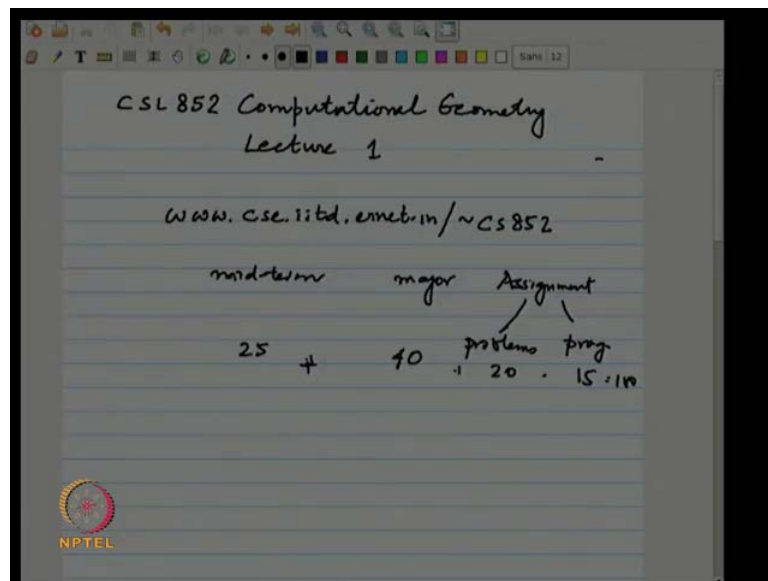 T Sans 12
CSL 852 Computational Geometry
Lecture 1
www.cse.iitd.ernet.in/~cs852
mid-term major Assignment
problems prog.
25 + 40 + 20 + 15 = 100
NPTEL